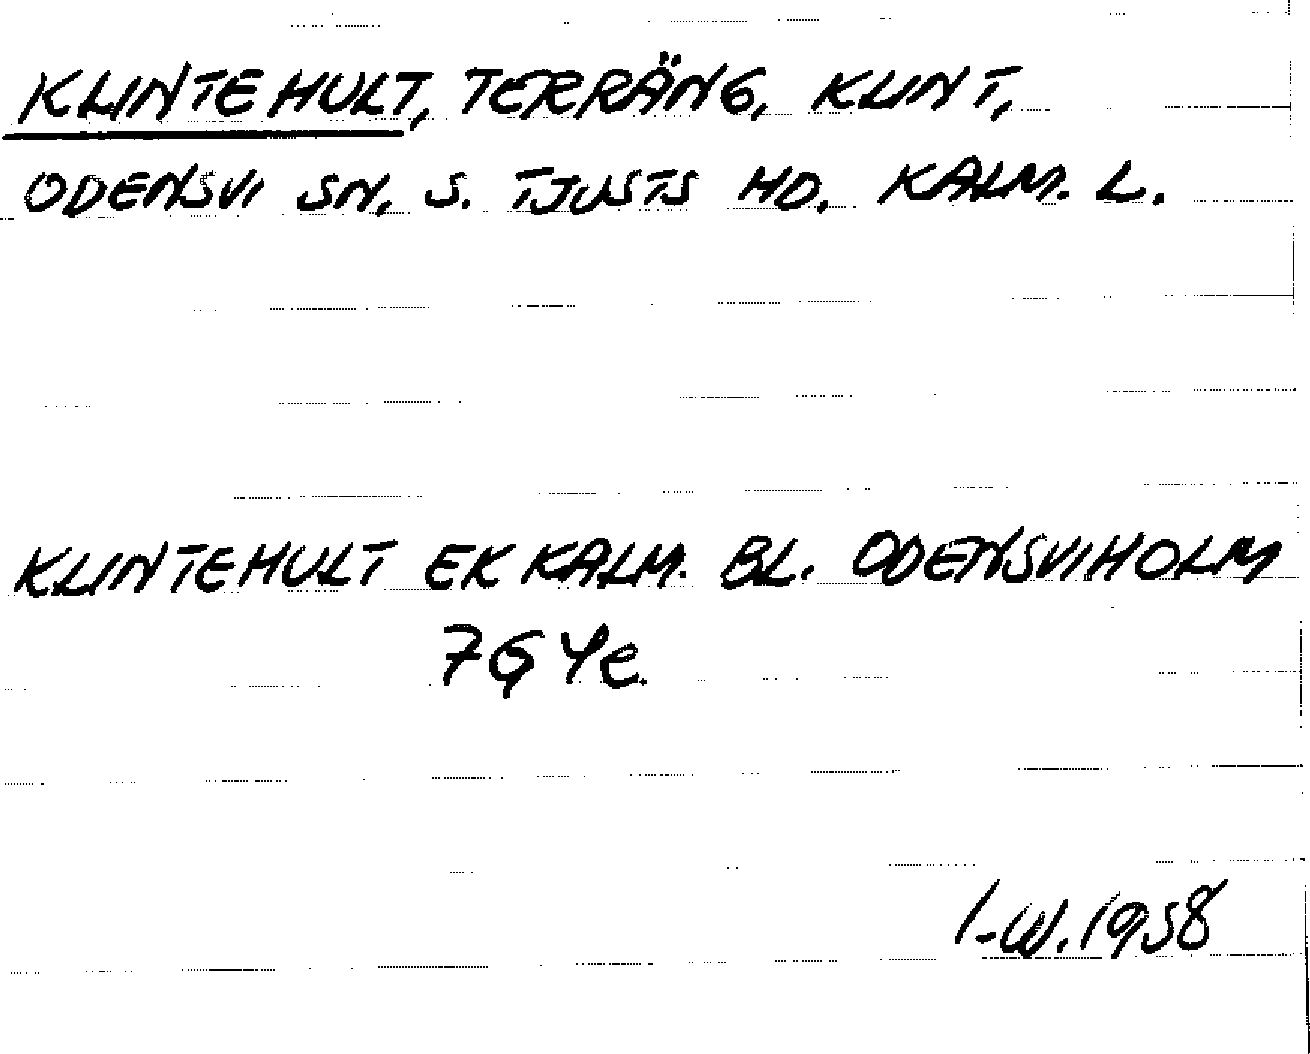 KLINTEHULT, TERRÄNG, KLINT,
ODENSVI SN, S. TJUSTS HD, KALM. L.
KLINTEHULT EK KALM. BL. ODENSVIHOLM
7G4e.
I-W. 1958